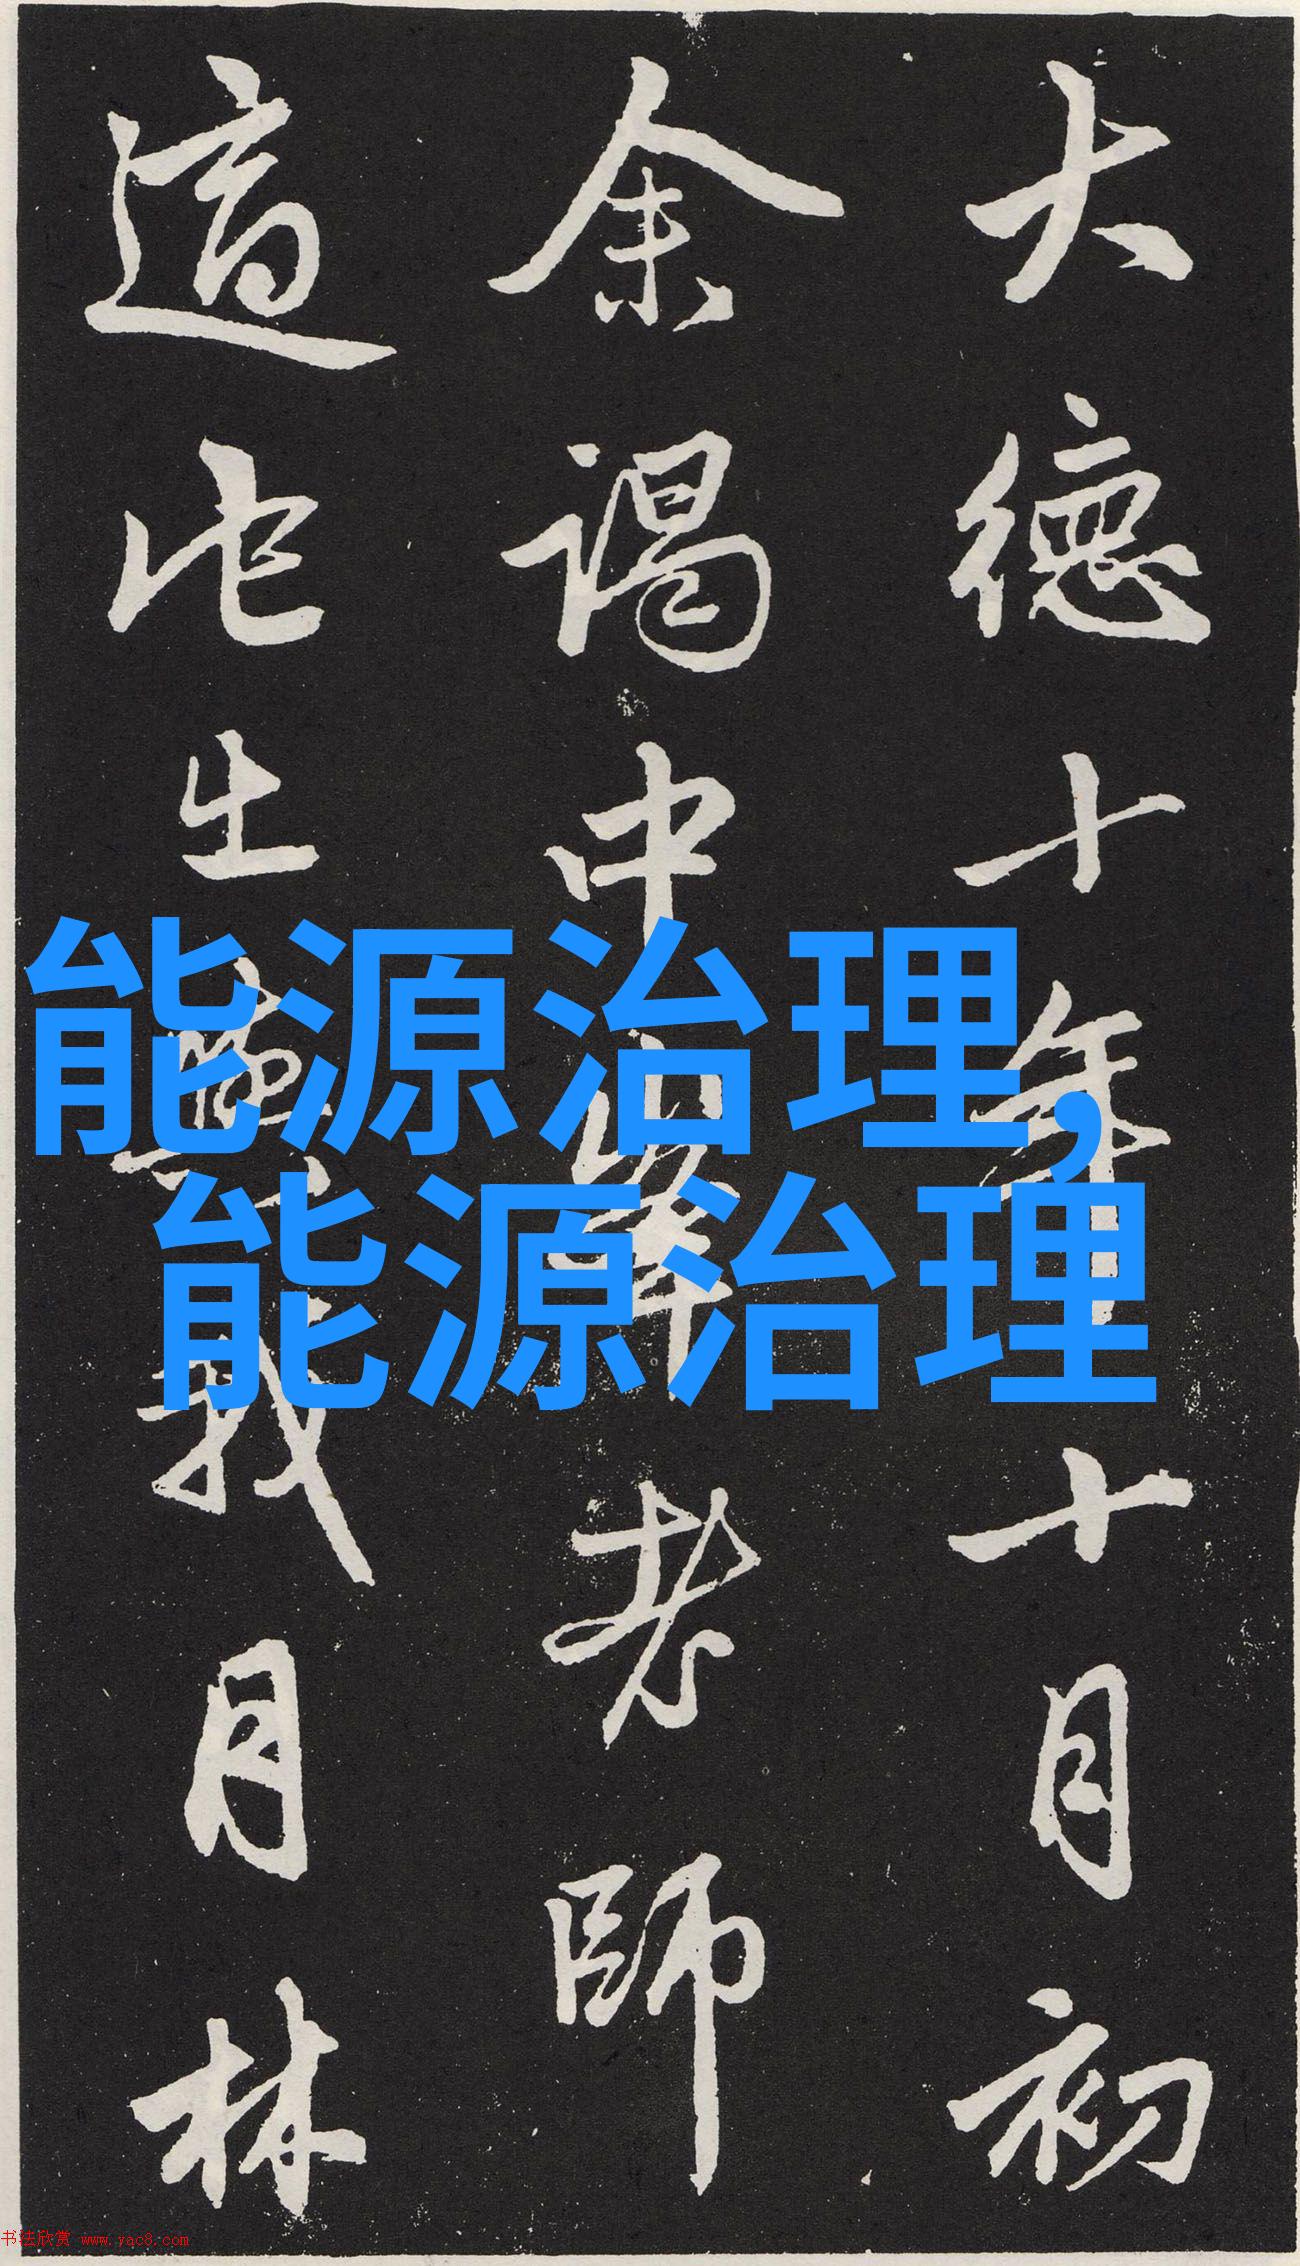 大德十年十月初
余谒中峰老師
適此出盛哉月林
能源治理,
能源治理
书法欣赏 www.yac8.com